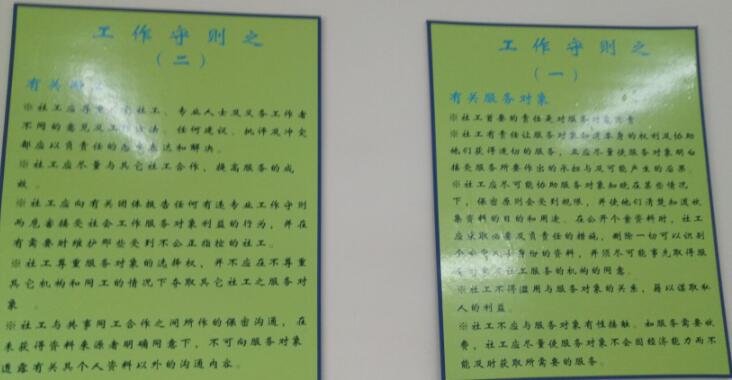 工作守则之
（二）
有关
※社工应尊重 有社工、专业人士及义务工作者
不同的意见及工作 法。任何建议、批评及冲突
都应以负责任的态度表达和解决。
※社工应尽量与其它社工合作，提高服务的成
效。
※社工应向有关团体报告任何有违专业工作守则
而危害接受社会工作服务对象利益的行为，并在
有需要时维护那些受到不公正指控的社工。
※社工尊重服务对象的选择权，并不应在不尊重
其它机构和同工的情况下夺取其它社工之服务对
象。
※社工与共事同工合作之间所作的保密沟通，在
未获得资料来源者明确同意下，不可向服务对象
透露有关其个人资料以外的沟通内容。
工作守则之
（一）
有关服务对象
※社工首要的责任是对服务对象负责
※社工有责任让服务对象知道本身的权利及协助
他们获得适切的服务，且应尽量使服务对象明白
接受服务所要作出的承担与及可能产生的后果。
※社工应尽可能协助服务对象知晓在某些情况
下，保密原则会受到规限，并使他们清楚知道收
集资料的目的和用途。在公开个案资料时，社工
应采取必要及负责任的措施，删除一切可以识别
个 身份的资料，并须尽可能事先取得服
社工服务的机构的同意。
※社工不得滥用与服务对象的关系，藉以谋取私
人的利益。
※社工不应与服务对象有性接触。如服务需要收
费，社工应尽量使服务对象不会因经济能力而不
能及时获取所需要的服务。